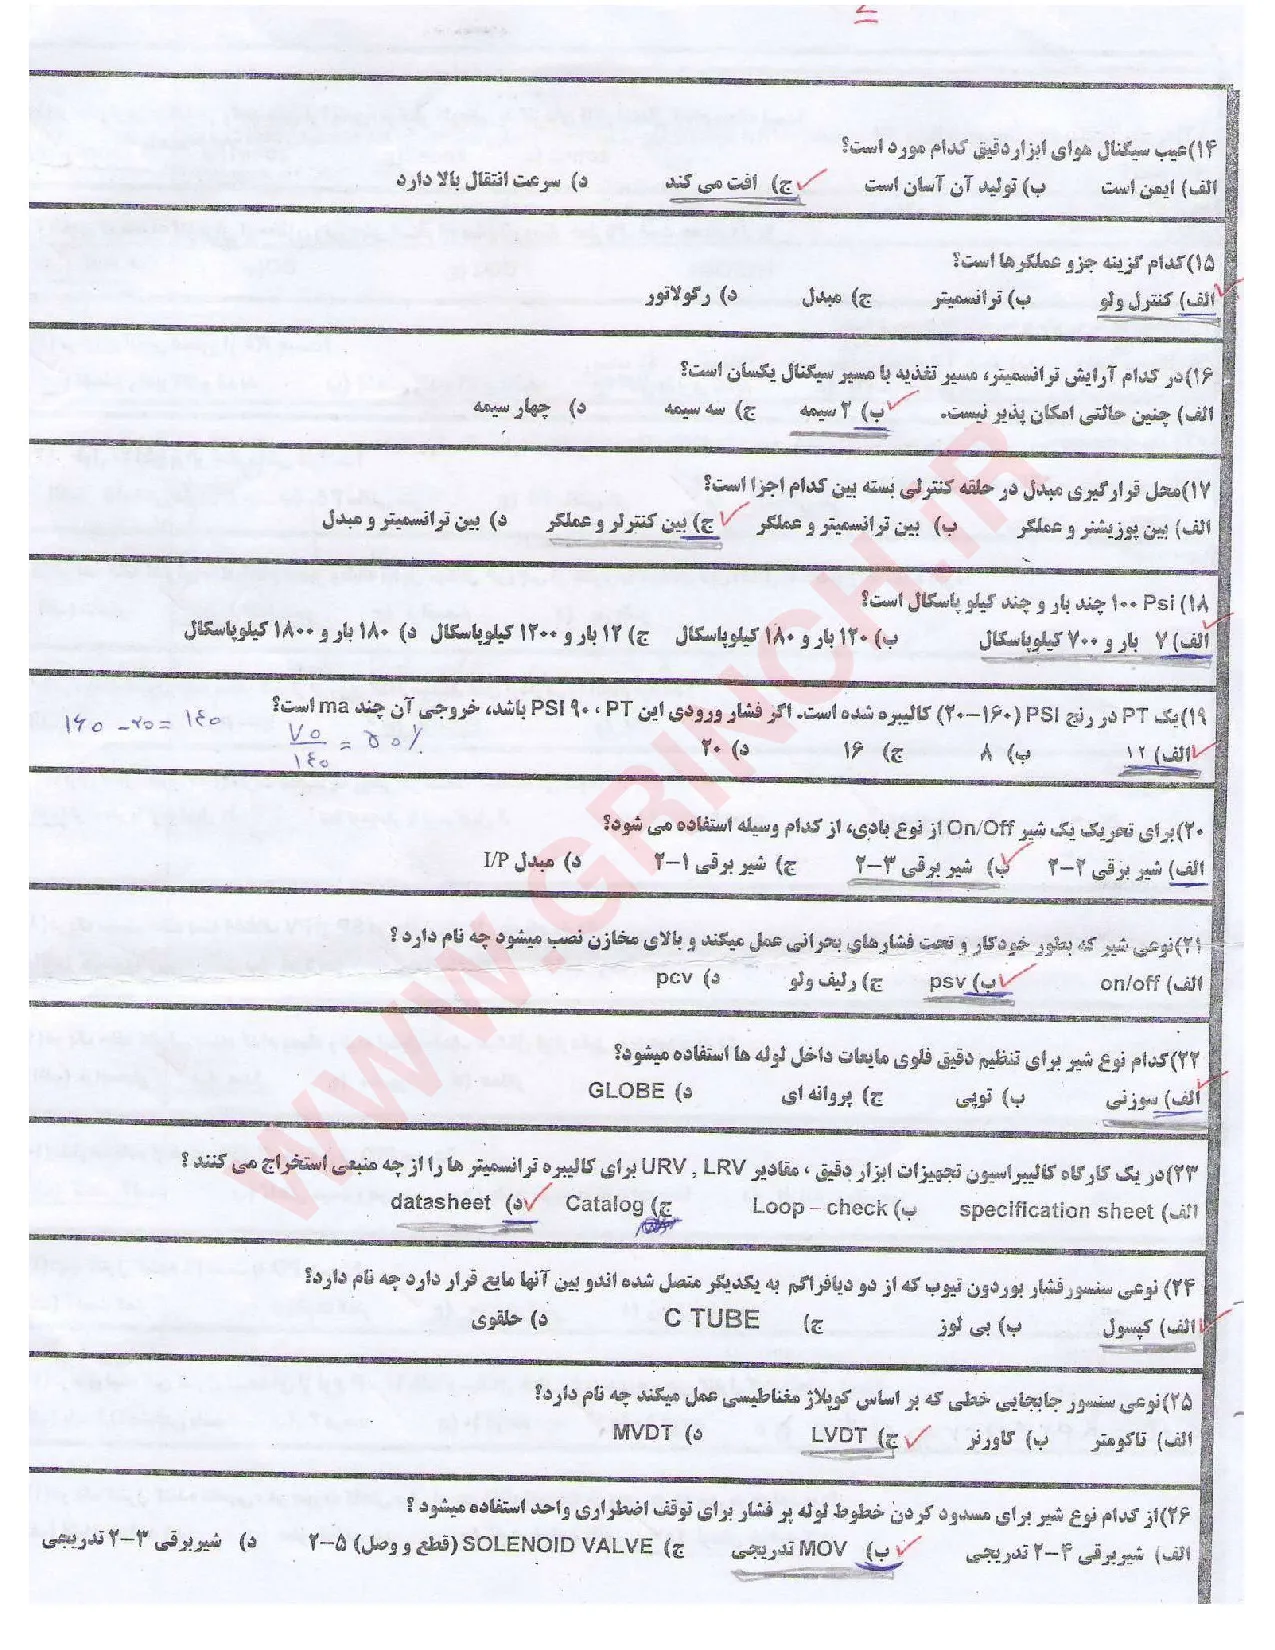 ۱۴)عیب سیگنال هوای ابزاردقیق کدام مورد است؟
الف) ایمن است ب) تولید آن آسان است ج) افت می کند د) سرعت انتقال بالا دارد
۱۵)کدام گزینه جزو عملگرها است؟
الف) کنترل ولو ب) ترانسمیتر ج) مبدل د) رگولاتور
۱۶)در کدام آرایش ترانسمیتر، مسیر تغذیه با مسیر سیگنال یکسان است؟
الف) چنین حالتی امکان پذیر نیست. ب) ۲ سیمه ج) سه سیمه د) چهار سیمه
۱۷)محل قرارگیری مبدل در حلقه کنترلی بسته بین کدام اجزا است؟
الف) بین پوزیشنر و عملگر ب) بین ترانسمیتر و عملگر ج) بین کنترلر و عملگر د) بین ترانسمیتر و مبدل
۱۸) ۱۰۰ Psi چند بار و چند کیلو پاسکال است؟
الف) ۷ بار و ۷۰۰ کیلوپاسکال ب) ۱۲۰ بار و ۱۸۰ کیلوپاسکال ج) ۱۲ بار و ۱۲۰۰ کیلوپاسکال د) ۱۸۰ بار و ۱۸۰۰ کیلوپاسکال
۱۹)یک PT در رنج PSI (۲۰-۱۶۰) کالیبره شده است. اگر فشار ورودی این PT ، ۹۰ PSI باشد، خروجی آن چند ma است؟
۱۶۰ - ۲۰ = ۱۴۰
۷۰/۱۴۰ = ۵۰٪
الف) ۱۲ ب) ۸ ج) ۱۶ د) ۲۰
۲۰)برای تحریک یک شیر On/Off از نوع بادی، از کدام وسیله استفاده می شود؟
الف) شیر برقی ۲-۲ ب) شیر برقی ۳-۲ ج) شیر برقی ۱-۲ د) مبدل I/P
۲۱)نوعی شیر که بطور خودکار و تحت فشارهای بحرانی عمل میکند و بالای مخازن نصب میشود چه نام دارد ؟
الف) on/off ب) psv ج) رلیف ولو د) pcv
۲۲)کدام نوع شیر برای تنظیم دقیق فلوی مایعات داخل لوله ها استفاده میشود؟
الف) سوزنی ب) توپی ج) پروانه ای د) GLOBE
۲۳)در یک کارگاه کالیبراسیون تجهیزات ابزار دقیق ، مقادیر URV , LRV برای کالیبره ترانسمیتر ها را از چه منبعی استخراج می کنند ؟
الف) specification sheet ب) Loop – check ج) Catalog د) datasheet
۲۴) نوعی سنسورفشار بوردون تیوب که از دو دیافراگم به یکدیگر متصل شده اندو بین آنها مایع قرار دارد چه نام دارد؟
الف) کپسول ب) بی لوز ج) C TUBE د) حلقوی
۲۵)نوعی سنسور جابجایی خطی که بر اساس کوپلاژ مغناطیسی عمل میکند چه نام دارد؟
الف) تاکومتر ب) گاورنر ج) LVDT د) MVDT
۲۶)از کدام نوع شیر برای مسدود کردن خطوط لوله پر فشار برای توقف اضطراری واحد استفاده میشود ؟
الف) شیربرقی ۴-۲ تدریجی ب) MOV تدریجی ج) SOLENOID VALVE (قطع و وصل) ۵-۲ د) شیربرقی ۳-۲ تدریجی
WWW.GRINCH.IR